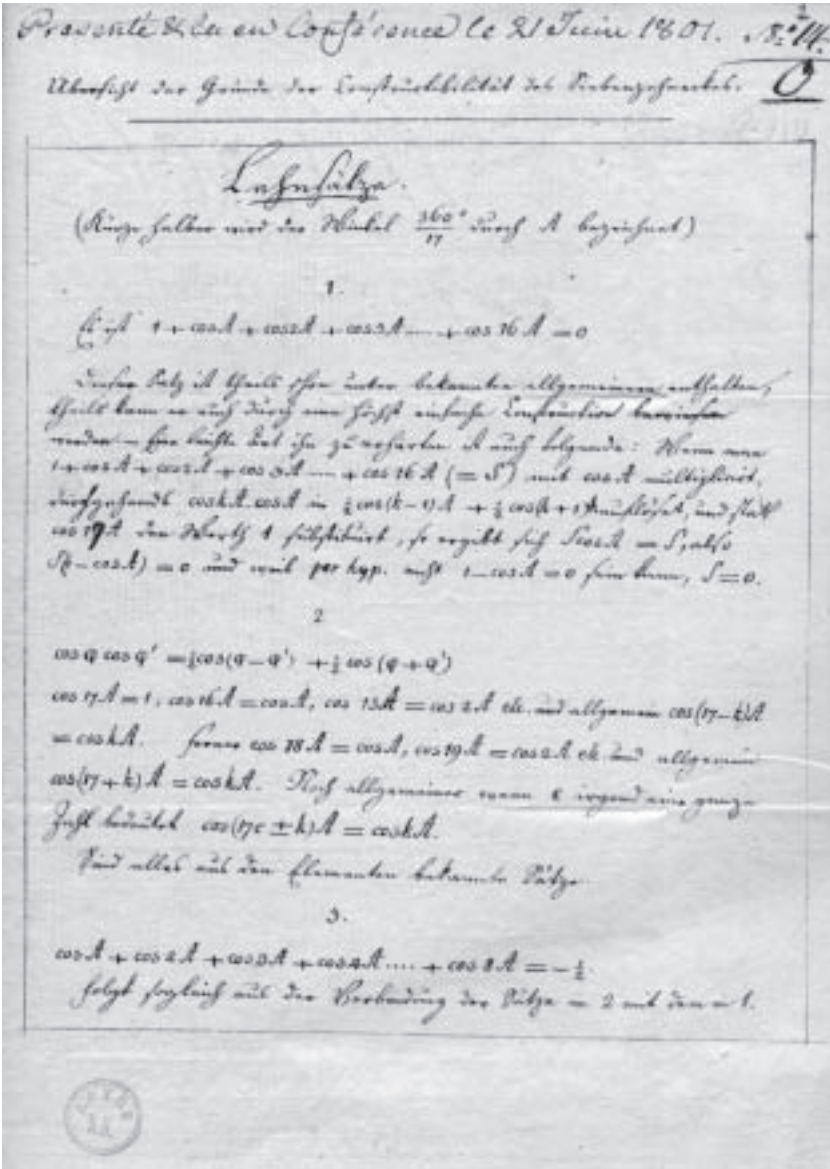 Presenté & lu en Conférence le 21 Juin 1801. No 14.
Übersicht der Gründe der Constructibilität des Siebenzehneckes.
Lehnsätze.
(Kürze halber wird der Winkel 360°/17 durch A bezeichnet)
1.
Es ist 1 + cos A + cos 2A + cos 3A .... + cos 16 A = 0
Dieser Satz ist theils schon unter bekannten allgemeinern enthalten,
theils kann er auch durch eine höchst einfache Construction bewiesen
werden – Eine leichte Art ihn zu erhärten ist auch folgende: Wenn man
1 + cos A + cos 2A + cos 3A .... + cos 16 A (= S) mit cos A multiplicirt,
durchgehends cos kA. cos A in ½ cos(k–1)A + ½ cos(k+1)A auflöset, und statt
cos 17A den Werth 1 substituirt, so ergibt sich S cos A = S, also
S(1–cos A) = 0 und weil per hyp. nicht 1–cos A = 0 sein kann, S = 0.
2
cos φ cos φ' = ½ cos(φ–φ') + ½ cos (φ+φ')
cos 17 A = 1, cos 16 A = cos A, cos 15 A = cos 2 A etc. und allgemein cos(17–k)A
= cos kA. Ferner cos 18 A = cos A, cos 19 A = cos 2 A etc. und allgemein
cos(17+k) A = cos kA. Noch allgemeiner wenn c irgend eine ganze
Zahl bedeutet cos(17c ± k)A = cos kA.
Sind alles aus den Elementen bekannte Sätze.
3.
cos A + cos 2 A + cos 3 A + cos 4 A .... + cos 8 A = – ½.
folgt sogleich aus der Verbindung der Sätze in 2 mit dem in 1.